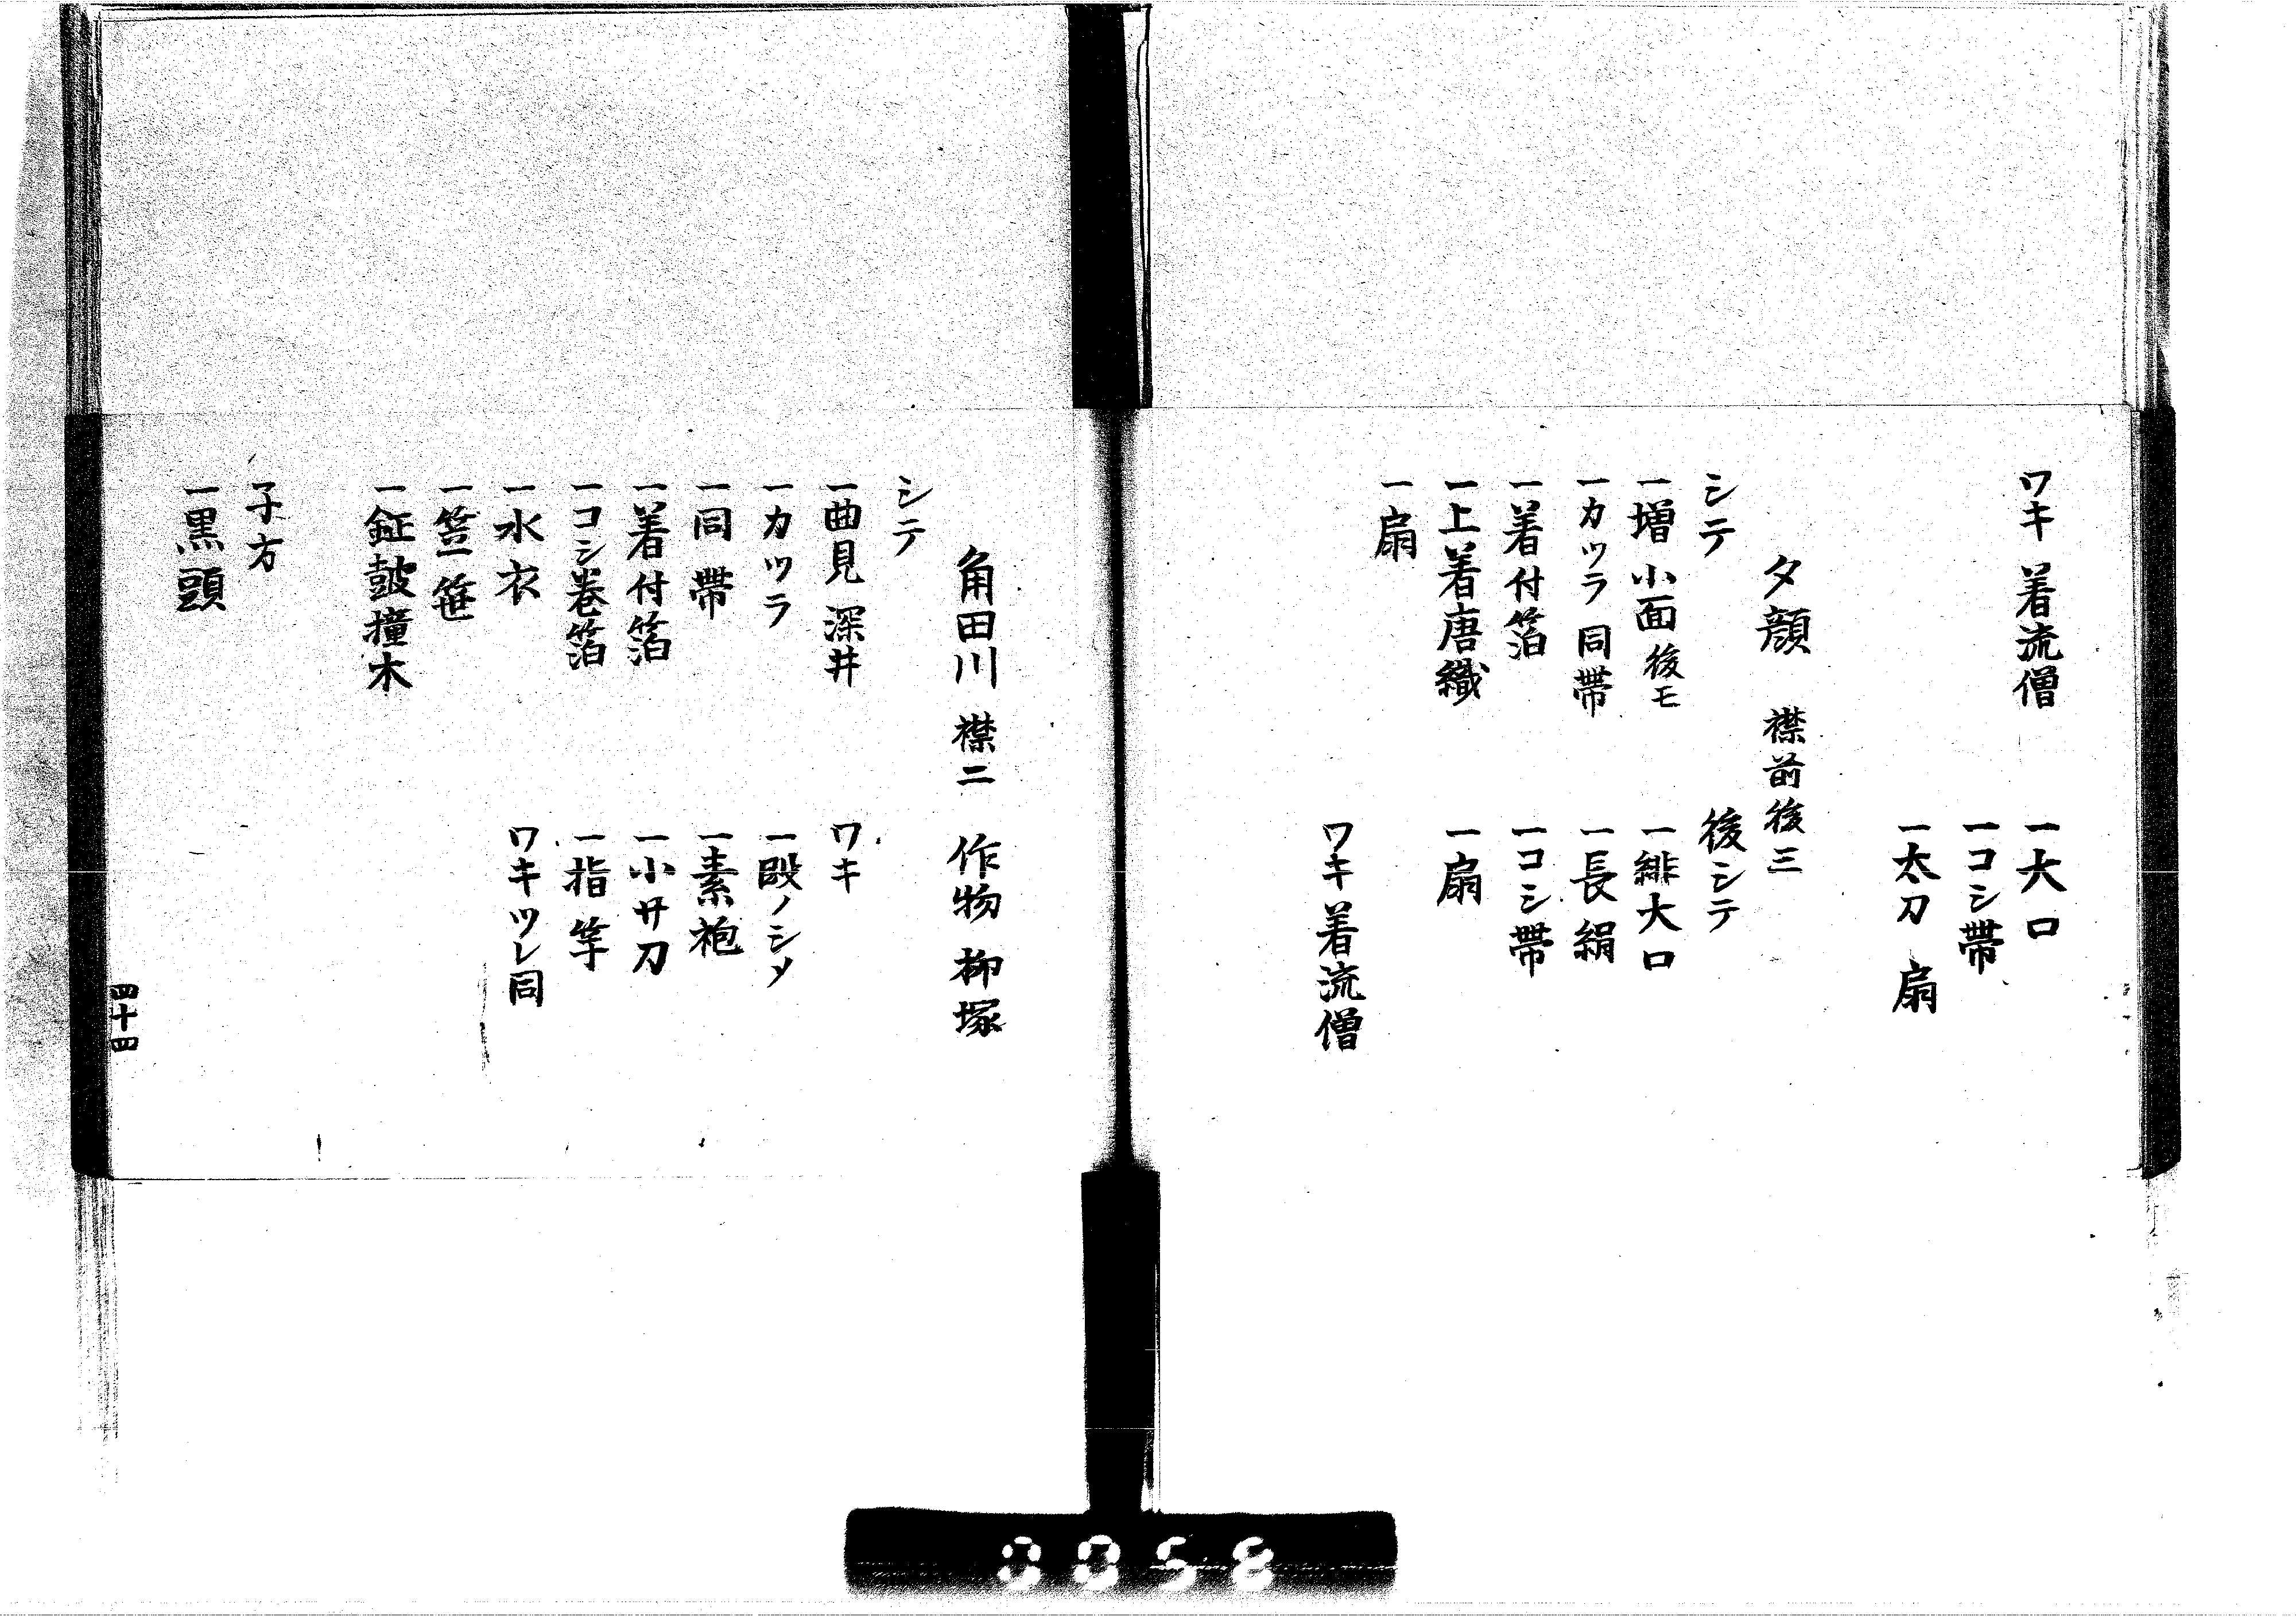 ワキ 着流僧
一大口
一コシ帶
一太刀 扇
夕顔 襟前後三
シテ
一増 小面 後モ
一カツラ 同帶
一着付箔
一上着唐織
一扇
後シテ
一緋大口
一長絹
一コシ帶
一扇
ワキ 着流僧
角田川 襟二 作物 柳塚
シテ
一曲見 深井
一カツラ
一同帶
一着付箔
一コシ巻箔
一水衣
一笠一笹
一鉦皷撞木
ワキ
一段ノシメ
一素袍
一小サ刀
一指竿
ワキツレ同
子方
一黒頭
四十四